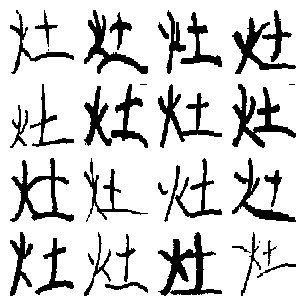 灶灶灶灶
灶灶灶灶
灶灶灶灶
灶灶灶灶